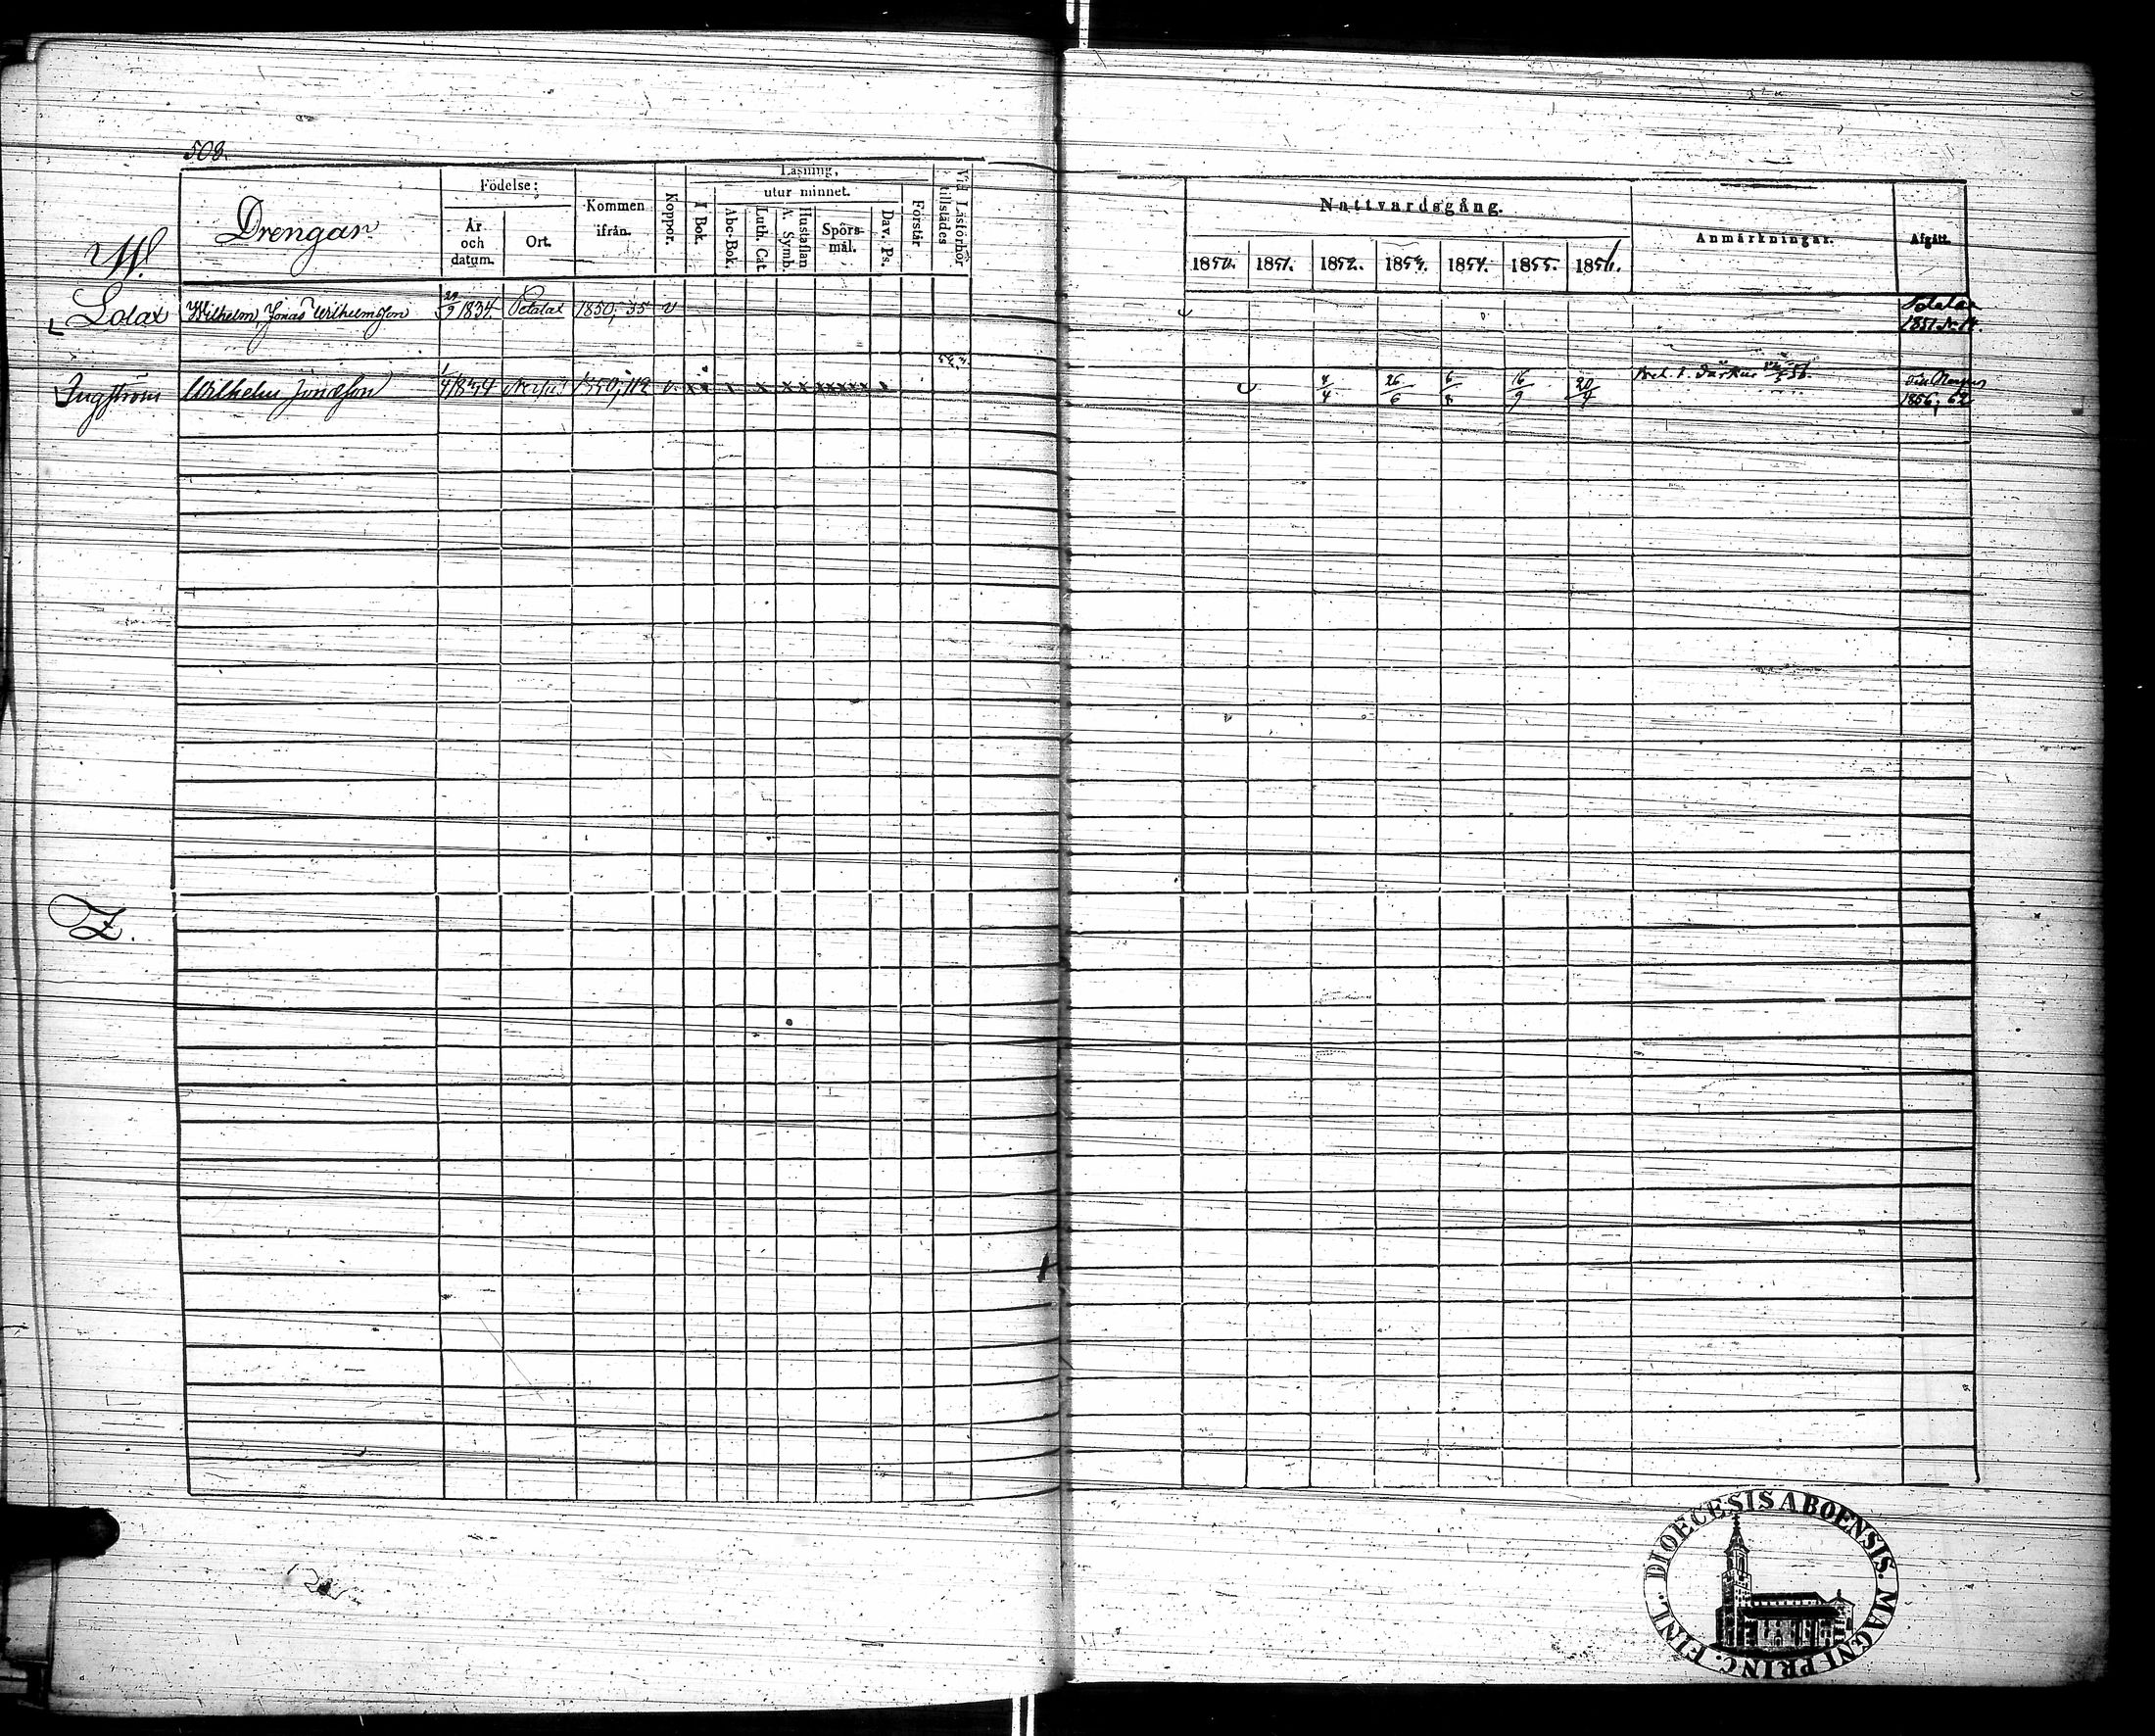 508.
W.
Drengar
Födelse:
År och datum.
Ort.
Kommen ifrån.
Koppor.
Läsning,
I Bok.
utur minnet.
Abc-Bok.
Luth. Cat.
A. Symb.
Hustaflan
Spörs-mål.
Dav. Ps.
Förstår
Vid Läsförhör tillstädes
Nattvardsgång.
1850. 1851. 1852. 1853. 1854. 1855. 1856.
Anmärkningar.
Afgått.
Solax Wilhelm, Jonas Wilhelmsson 9 1834 Petalax 1850, 35 v Petalax
1851 N. 14
Ingström Wilhelm Jonasson 1/4 1834 1850, 112 v x x x x x x x x x x x 4/4 26/6 6/8 16/9 20/9
1856, 62
Z.
DIOECESIS ABOENSIS. MAGNI PRINC. FINL.